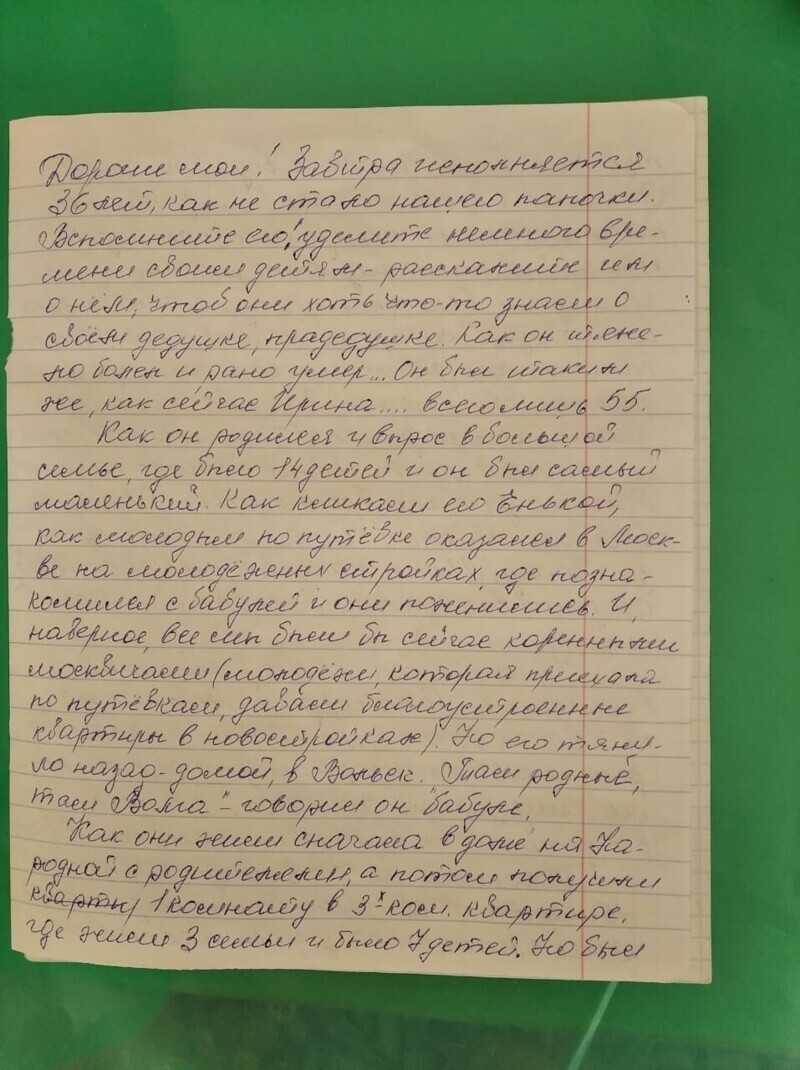 Дорогие мои! Завтра исполняется
36 лет, как не стало нашего папочки.
Вспомните его! уделите немного вре-
мени своим детям - расскажите им
о нём, чтоб они хоть что-то знали о
своём дедушке, прадедушке. Как он тяже-
ло болел и рано умер... Он был таким
же, как сейчас Ирина.... всего лишь 55.
Как он родился и вырос в большой
семье, где было 14 детей и он был самый
маленький. Как кликали его Енькой,
как молодым по путёвке оказался в Моск-
ве на молодёжных стройках, где позна-
комился с бабулей и они поженились. И,
наверное, все мы были бы сейчас коренными
москвичами (молодёжи, которая приехала
по путёвкам, давали благоустроенные
квартиры в новостройках). Но его тяну-
ло назад - домой, в Вольск. "Там родные,
там Волга" - говорил он бабуле.
Как они жили сначала в доме на На-
родной с родителями, а потом получили
кварты 1 комнату в 3х ком. квартире,
где жили 3 семьи и было 7 детей. Но был